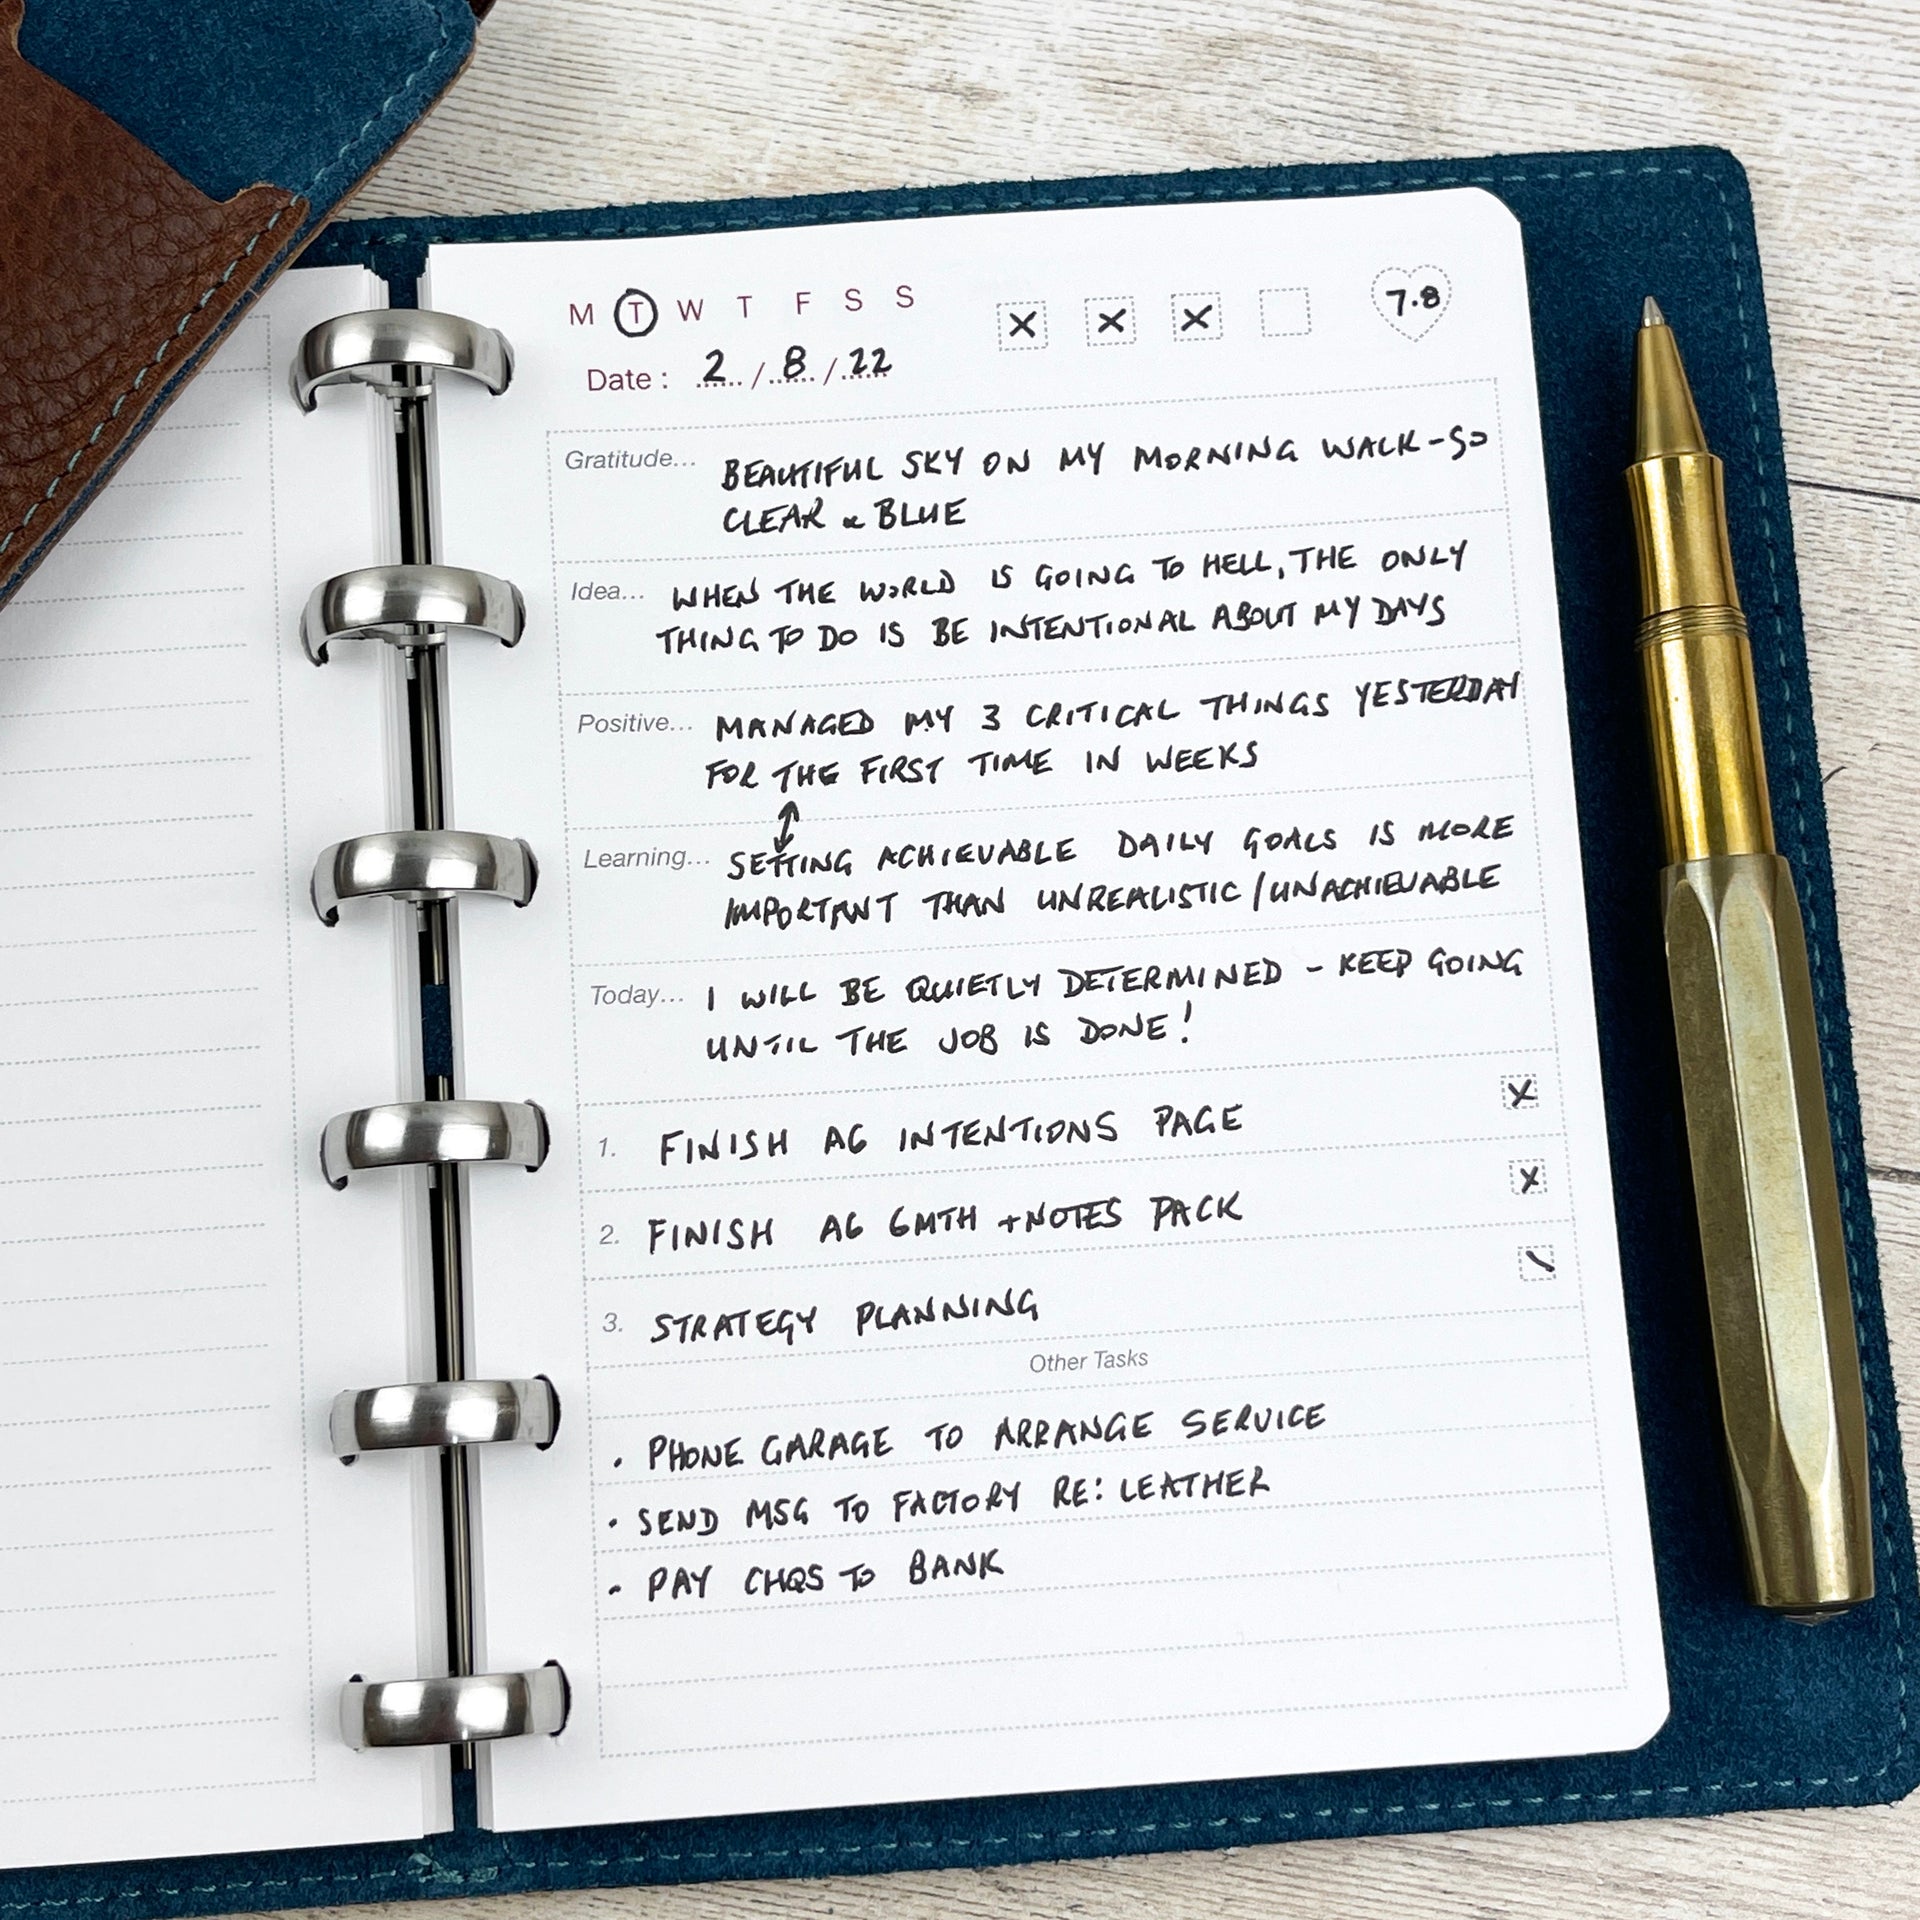 M T W T F S S
x x x 7.8
Date : 2 / 8 / 22
Gratitude... BEAUTIFUL SKY ON MY MORNING WALK - SO
CLEAR & BLUE
Idea... WHEN THE WORLD IS GOING TO HELL, THE ONLY
THING TO DO IS BE INTENTIONAL ABOUT MY DAYS
Positive... MANAGED MY 3 CRITICAL THINGS YESTERDAY
FOR THE FIRST TIME IN WEEKS
Learning... SETTING ACHIEVABLE DAILY GOALS IS MORE
IMPORTANT THAN UNREALISTIC / UNACHIEVABLE
Today... I WILL BE QUIETLY DETERMINED - KEEP GOING
UNTIL THE JOB IS DONE!
1. FINISH A6 INTENTIONS PAGE x
2. FINISH A6 6MTH + NOTES PACK x
3. STRATEGY PLANNING \
Other Tasks
• PHONE GARAGE TO ARRANGE SERVICE
• SEND MSG TO FACTORY RE: LEATHER
- PAY CHQS TO BANK